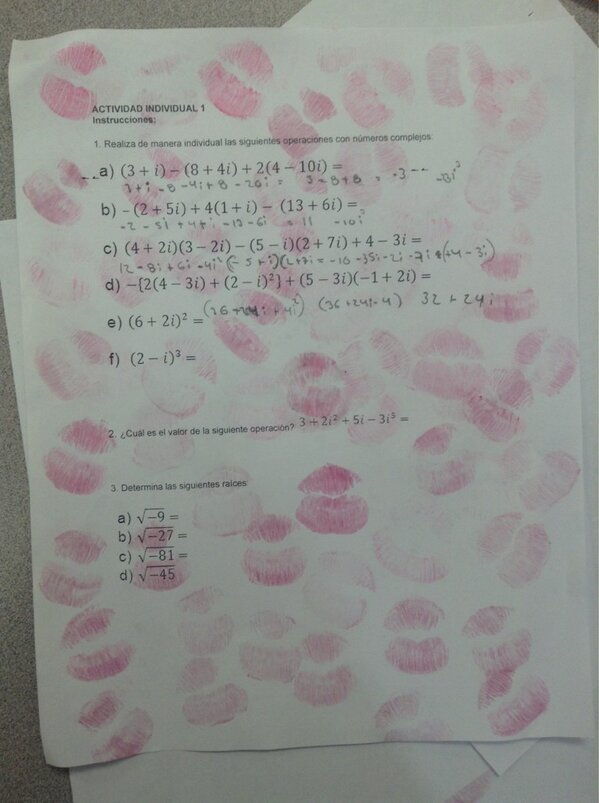 ACTIVIDAD INDIVIDUAL 1
Instrucciones:
1. Realiza de manera individual las siguientes operaciones con números complejos:
a) (3 + i) − (8 + 4i) + 2(4 − 10i) =
3+i −8 −4i+8 −20i = 3−8+8 =
b) -(2 + 5i) + 4(1 + i) − (13 + 6i) =
−2 −5i +4+i −13 −6i = 11 −10i
c) (4 + 2i)(3 − 2i) − (5 − i)(2 + 7i) + 4 − 3i =
12 −8i +6i −4i² (−5+i)(2+7i = −10 −35i −2i −7i +4 −3i)
d) −{2(4 − 3i) + (2 − i)²} + (5 − 3i)(−1 + 2i) =
e) (6 + 2i)² = (36 +24i +4i²) (36 +24i−4) 32 + 24i
f) (2 − i)³ =
2. ¿Cuál es el valor de la siguiente operación? 3 + 2i² + 5i − 3i⁵ =
3. Determina las siguientes raíces:
a) √−9 =
b) √−27 =
c) √−81 =
d) √−45